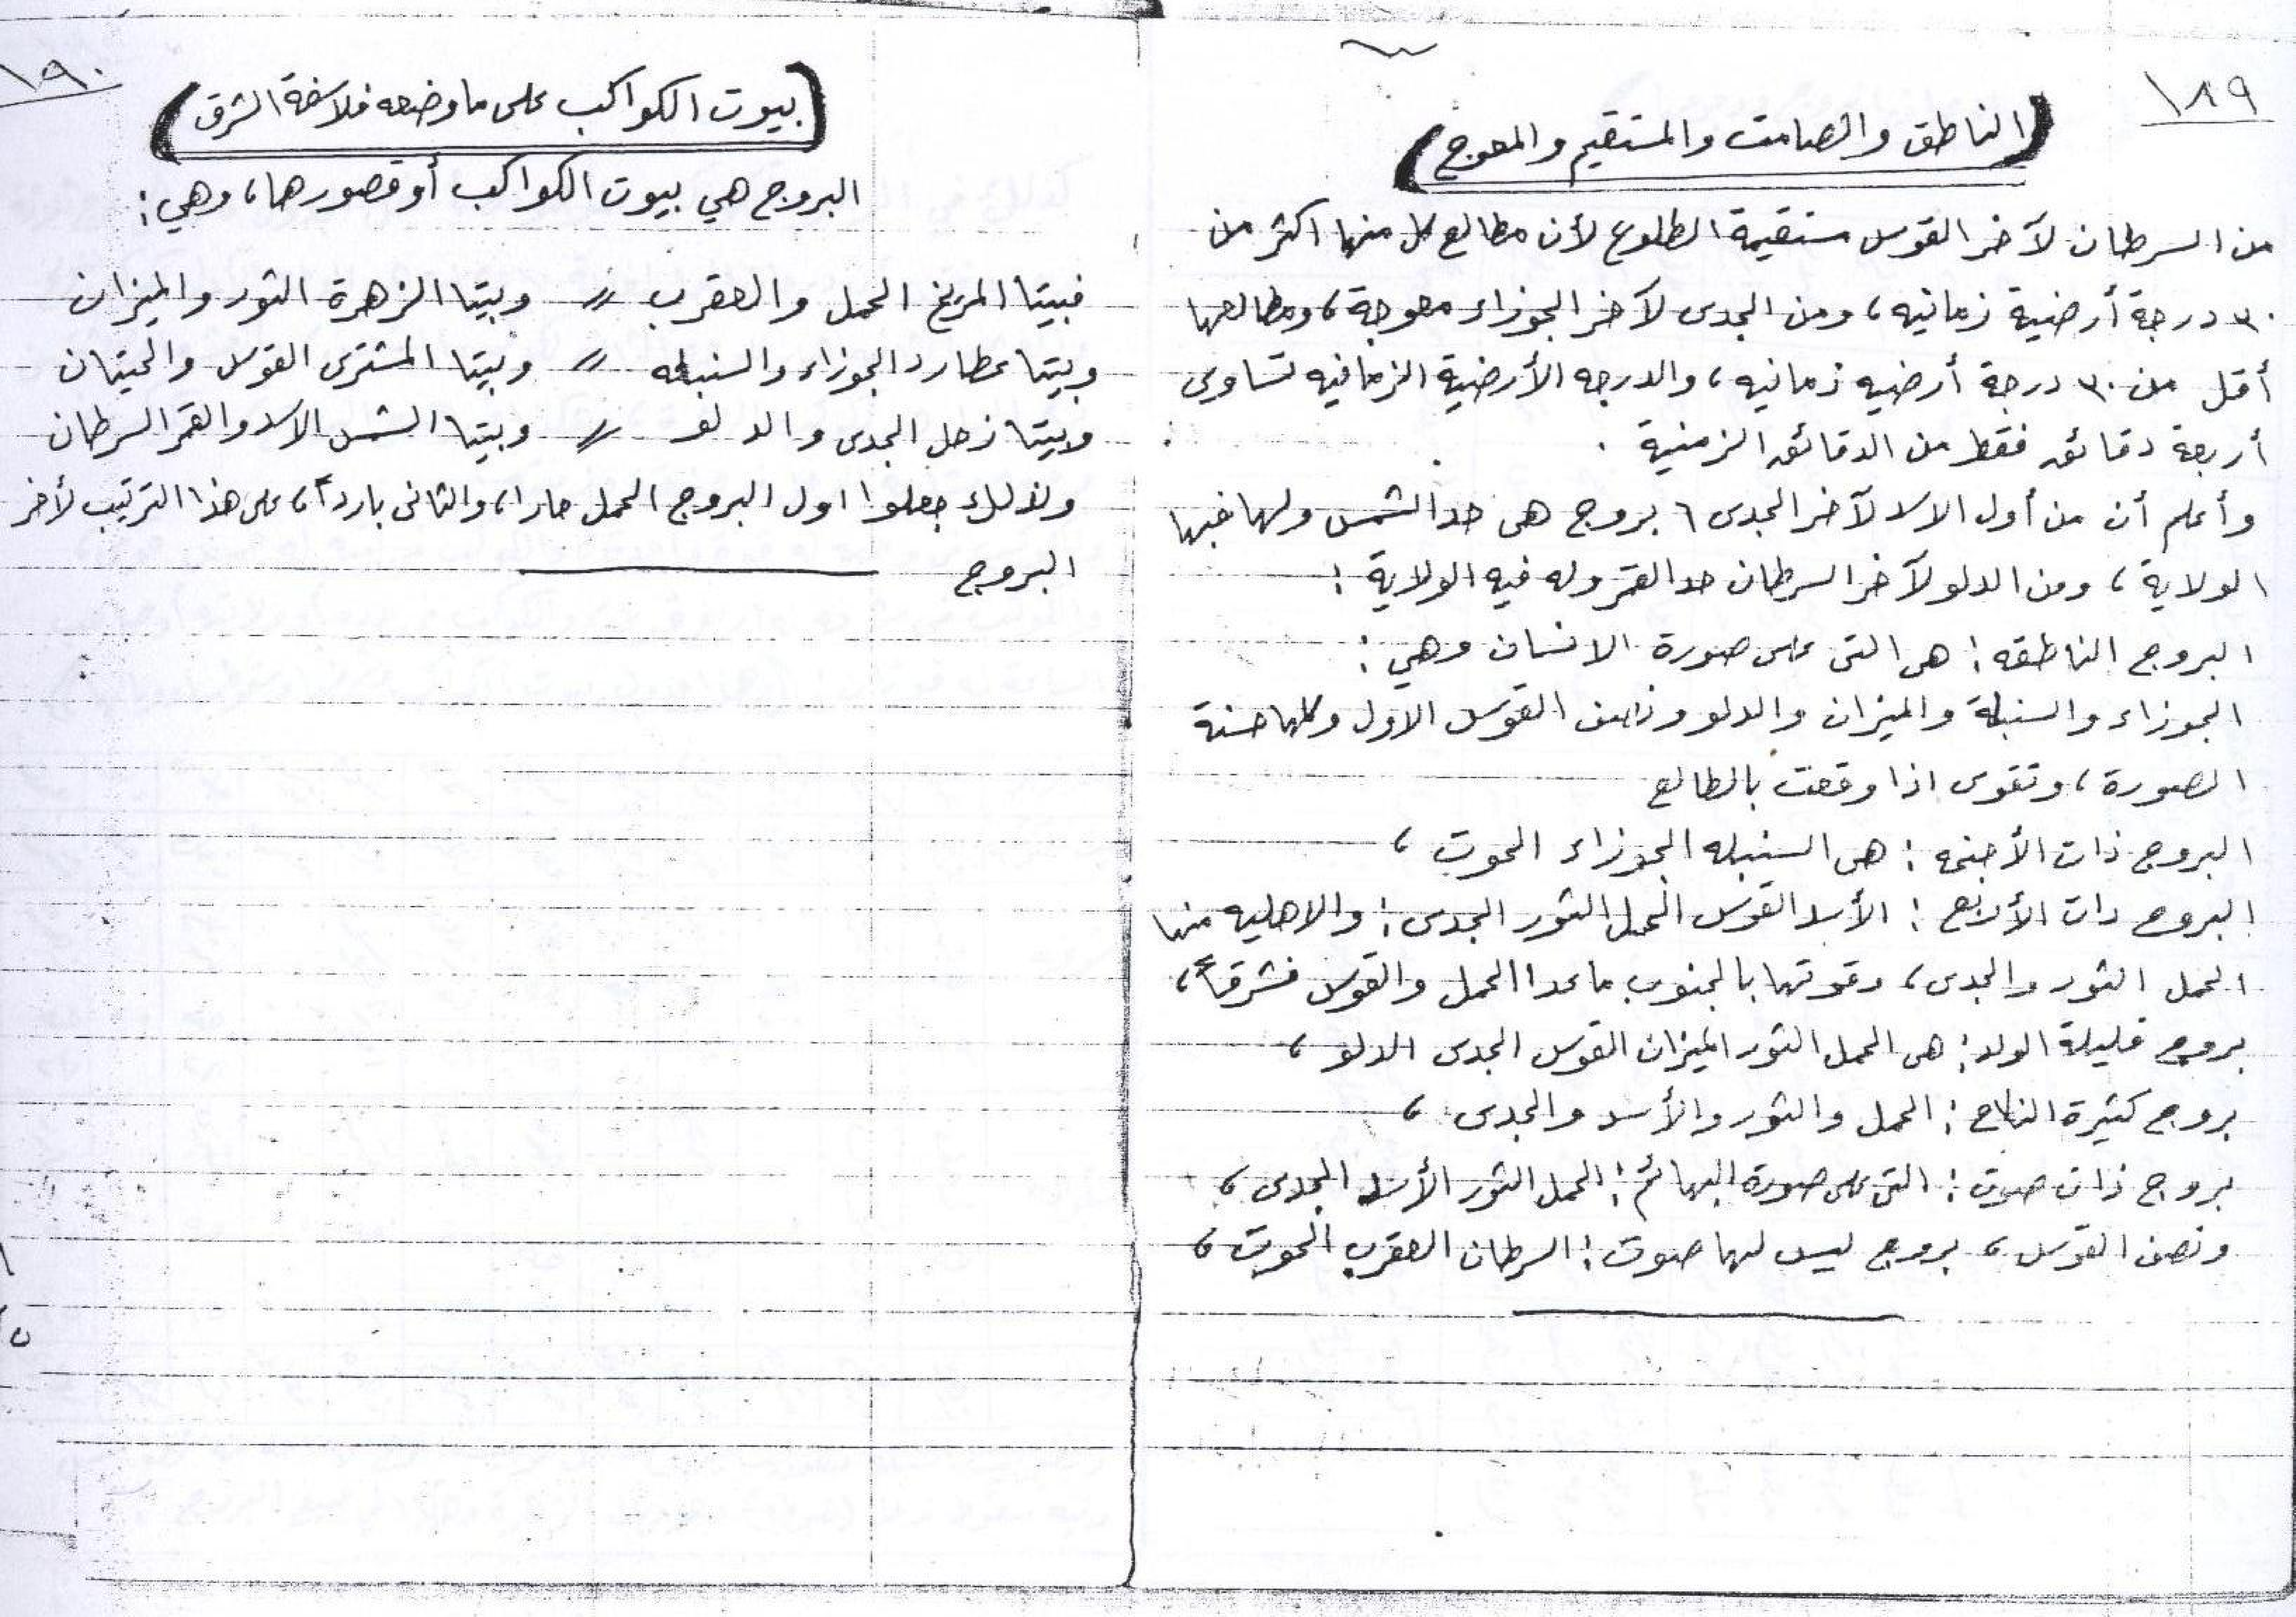 ١٨٩
(الناطق والصامت والمستقيم والمعوج)
من السرطان لآخر القوس مستقيمة الطلوع لأن مطالع كل منها اكثر من
٣٠ درجة أرضية زمانيه، ومن الجدى لآخر الجوزاء معوجة، ومطالعها
أقل من ٣٠ درجة أرضيه زمانيه، والدرجه الأرضية الزمانيه تساوى
أربعة دقائق فقط من الدقائق الزمنية .
وأعلم أن من أول الاسد لآخر الجدى ٦ بروج هى حد الشمس ولها فيها
الولاية، ومن الدلو لآخر السرطان حد القمر وله فيه الولاية :
البروج الناطقه : هى التى على صورة الانسان وهي :
الجوزاء والسنبلة والميزان والدلو ونصف القوس الاول وكلها حسنة
الصورة، وتقوى اذا وقعت بالطالع
البروج ذات الأجنحه : هى السنبله الجوزاء الحوت ،
البروج دات الأربع : الأسد القوس الحمل الثور الجدى : والاهليه منها
الحمل الثور والجدى، وقوتها بالجنوب ماعدا الحمل والقوس فشرقاً،
بروج قليلة الولد : هى الحمل الثور الميزان القوس الجدى الدلو ،
بروج كثيرة النكاح : الحمل والثور والأسد والجدى ،
بروج ذات صوت : التى على صورة البهائم : الحمل الثور الأسد الجدى ،
ونصف القوس ، بروج ليس لها صوت : السرطان العقرب الحوت ،
١٩٠
(بيوت الكواكب على ما وضعه فلاسفة الشرق)
البروج هي بيوت الكواكب أو قصورها، وهي :
فبيتا المريخ الحمل والعقرب // وبيتا الزهرة الثور والميزان
وبيتا عطارد الجوزاء والسنبله // وبيتا المشترى القوس والحيتان
وبيتا زحل الجدى والدلو // وبيتا الشمس الاسد والقمر السرطان
ولذلك جعلوا اول البروج الحمل حارا، والثانى بارداً، على هذا الترتيب لأخر
البروج